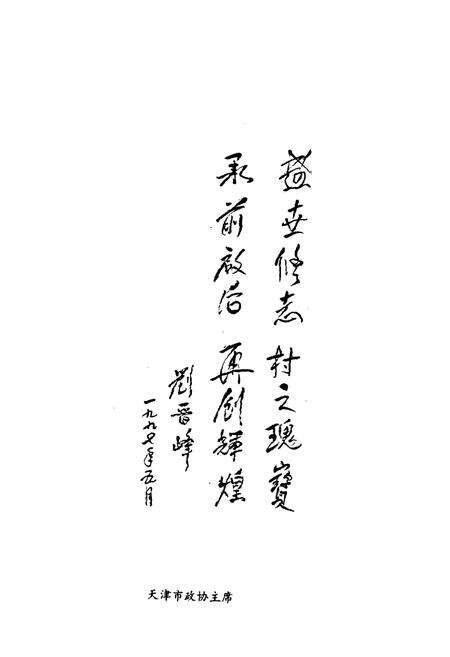 盛世修志 村之瑰寳
承前啟後 再創輝煌
劉晋峰
一九九七年五月
天津市政协主席